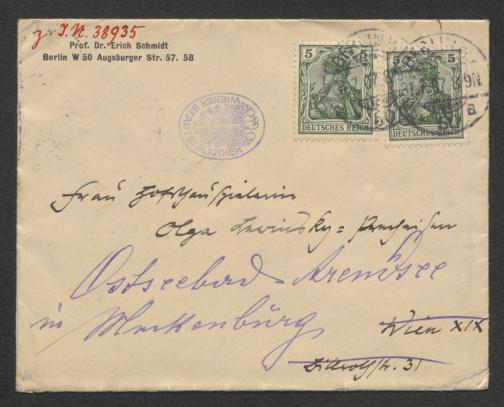 z J.N. 38935
Prof. Dr. Erich Schmidt
Berlin W 50 Augsburger Str. 57. 58
5 5
DEUTSCHES REICH DEUTSCHES REICH
WIENER STADTBIBLIOTHEK
Frau Hofschauspielerin
Olga Lewinsky-Precheisen
Ostseebad-Arendsee
in Meckenburg
Wien XIX
31